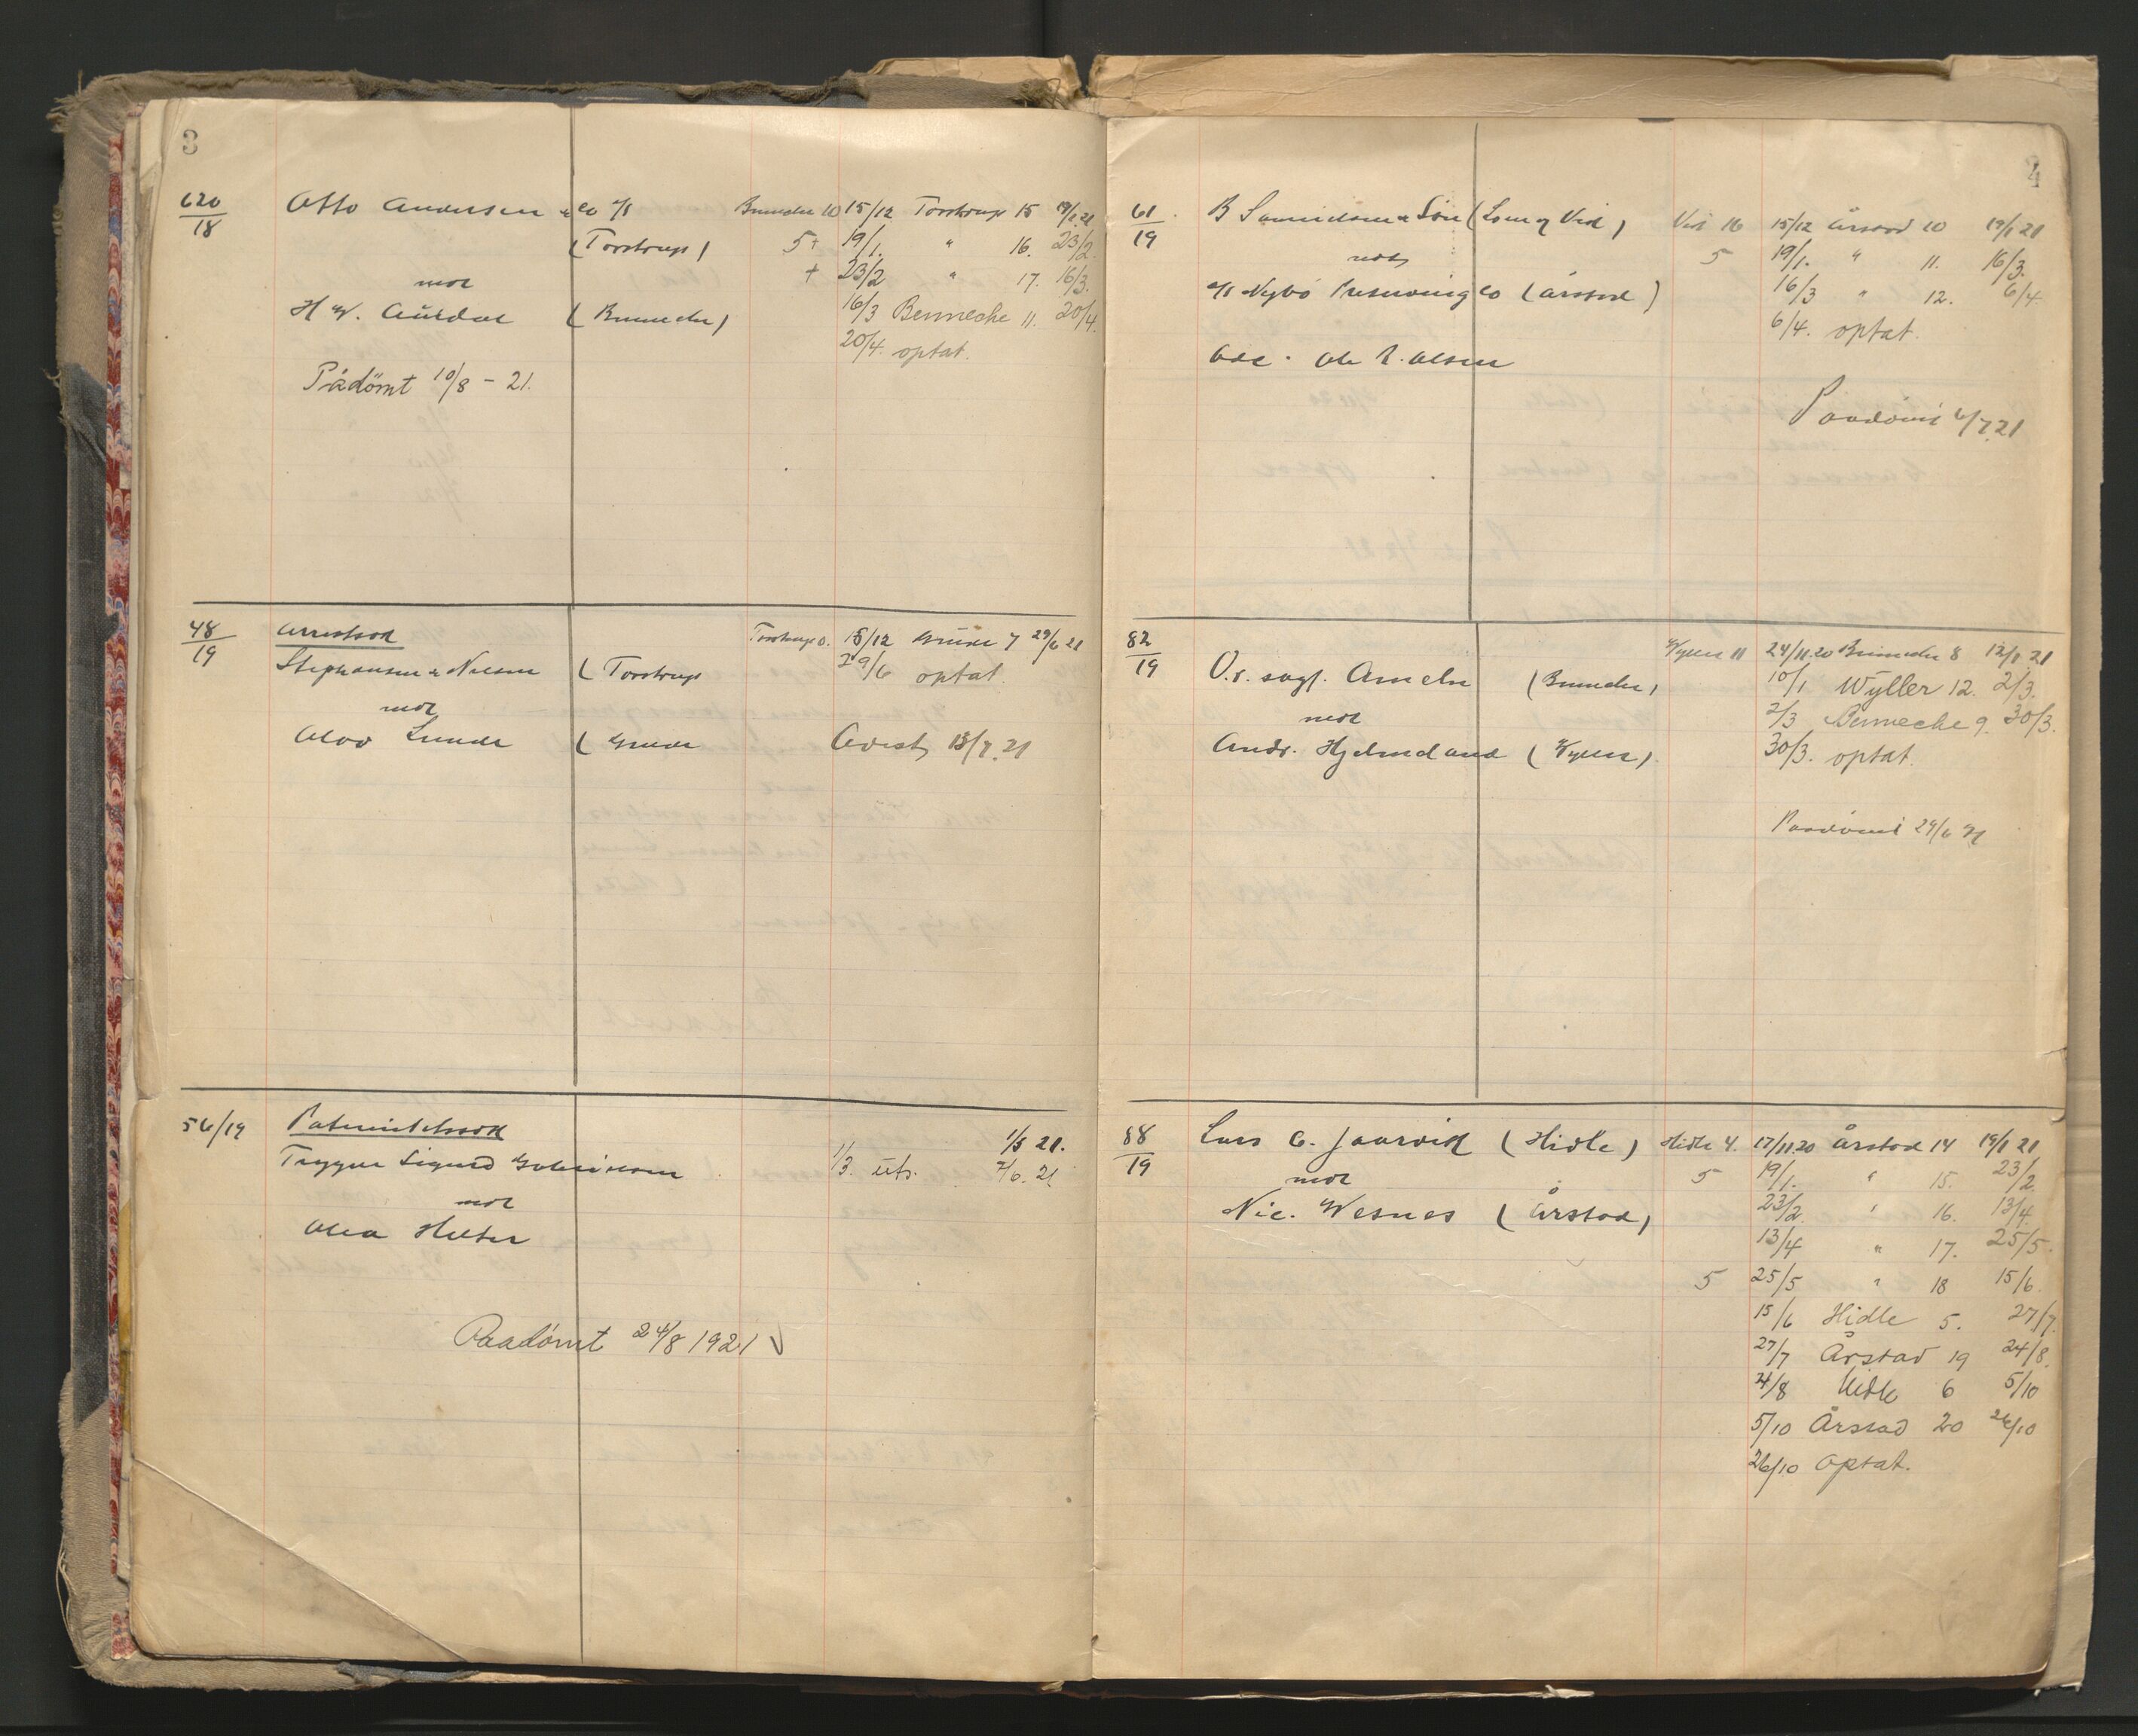 3
620/18 Otto Andersen & Co A/S Bennecke 10 15/12 Torstrup 15 19/1 21
(Torstrup) 5+ 19/1. " 16. 23/2.
+ 23/2 " 17. 16/3.
mot
H W. Aürdal (Bennecke) 16/3 Bennecke 11. 20/4.
20/4. optat.
Pådömt 10/8 - 21.
48/19 Arrestsak Torstrup 0. 15/12 Grude 7 29/6 21
Stephansen & Nilsen (Torstrup 29/6 optat.
mot
Olav Lunde (Grude Avist 13/7. 21
56/19 Paternitetssak 1/5 21.
Trygve Sigurd 1/3. uts. 2/6. 21
mot
Olea Helter
Paadömt 24/8 1921
4
61/19 B Samuelsen & Sön ( og Vid) Vid 16 15/12 Årstad 10 19/1 21
mot 5 19/1. " 11. 16/3.
A/S Nybö Preserving Co (Årstad) 16/3 " 12. 6/4.
6/4. optat.
Ole R. Olsen
Paadömt 6/7. 21
82/19 Wyller 11 24/11.20 Bennecke 8 12/1 21
O.r. sagf. Ameln (Bennecke) 10/1 Wyller 12. 2/3.
mot 2/3 Bennecke 9. 30/3.
Andr. Hjelmeland (Wyller) 30/3. optat.
Paadömt 29/6 21
88/19 Lars C. Jaarvik (Hidle) Hidle 4. 17/11.20 Årstad 14 19/1 21
mot 5 19/1. " 15. 23/2.
Nic. Wesnes (Årstad) 23/2. " 16. 13/4.
13/4 " 17. 25/5.
5 25/5 " 18 15/6.
15/6 Hidle 5. 27/7.
27/7 Årstad 19 24/8.
24/8 Hidle 6 5/10
5/10 Årstad 20 26/10
26/10 optat.